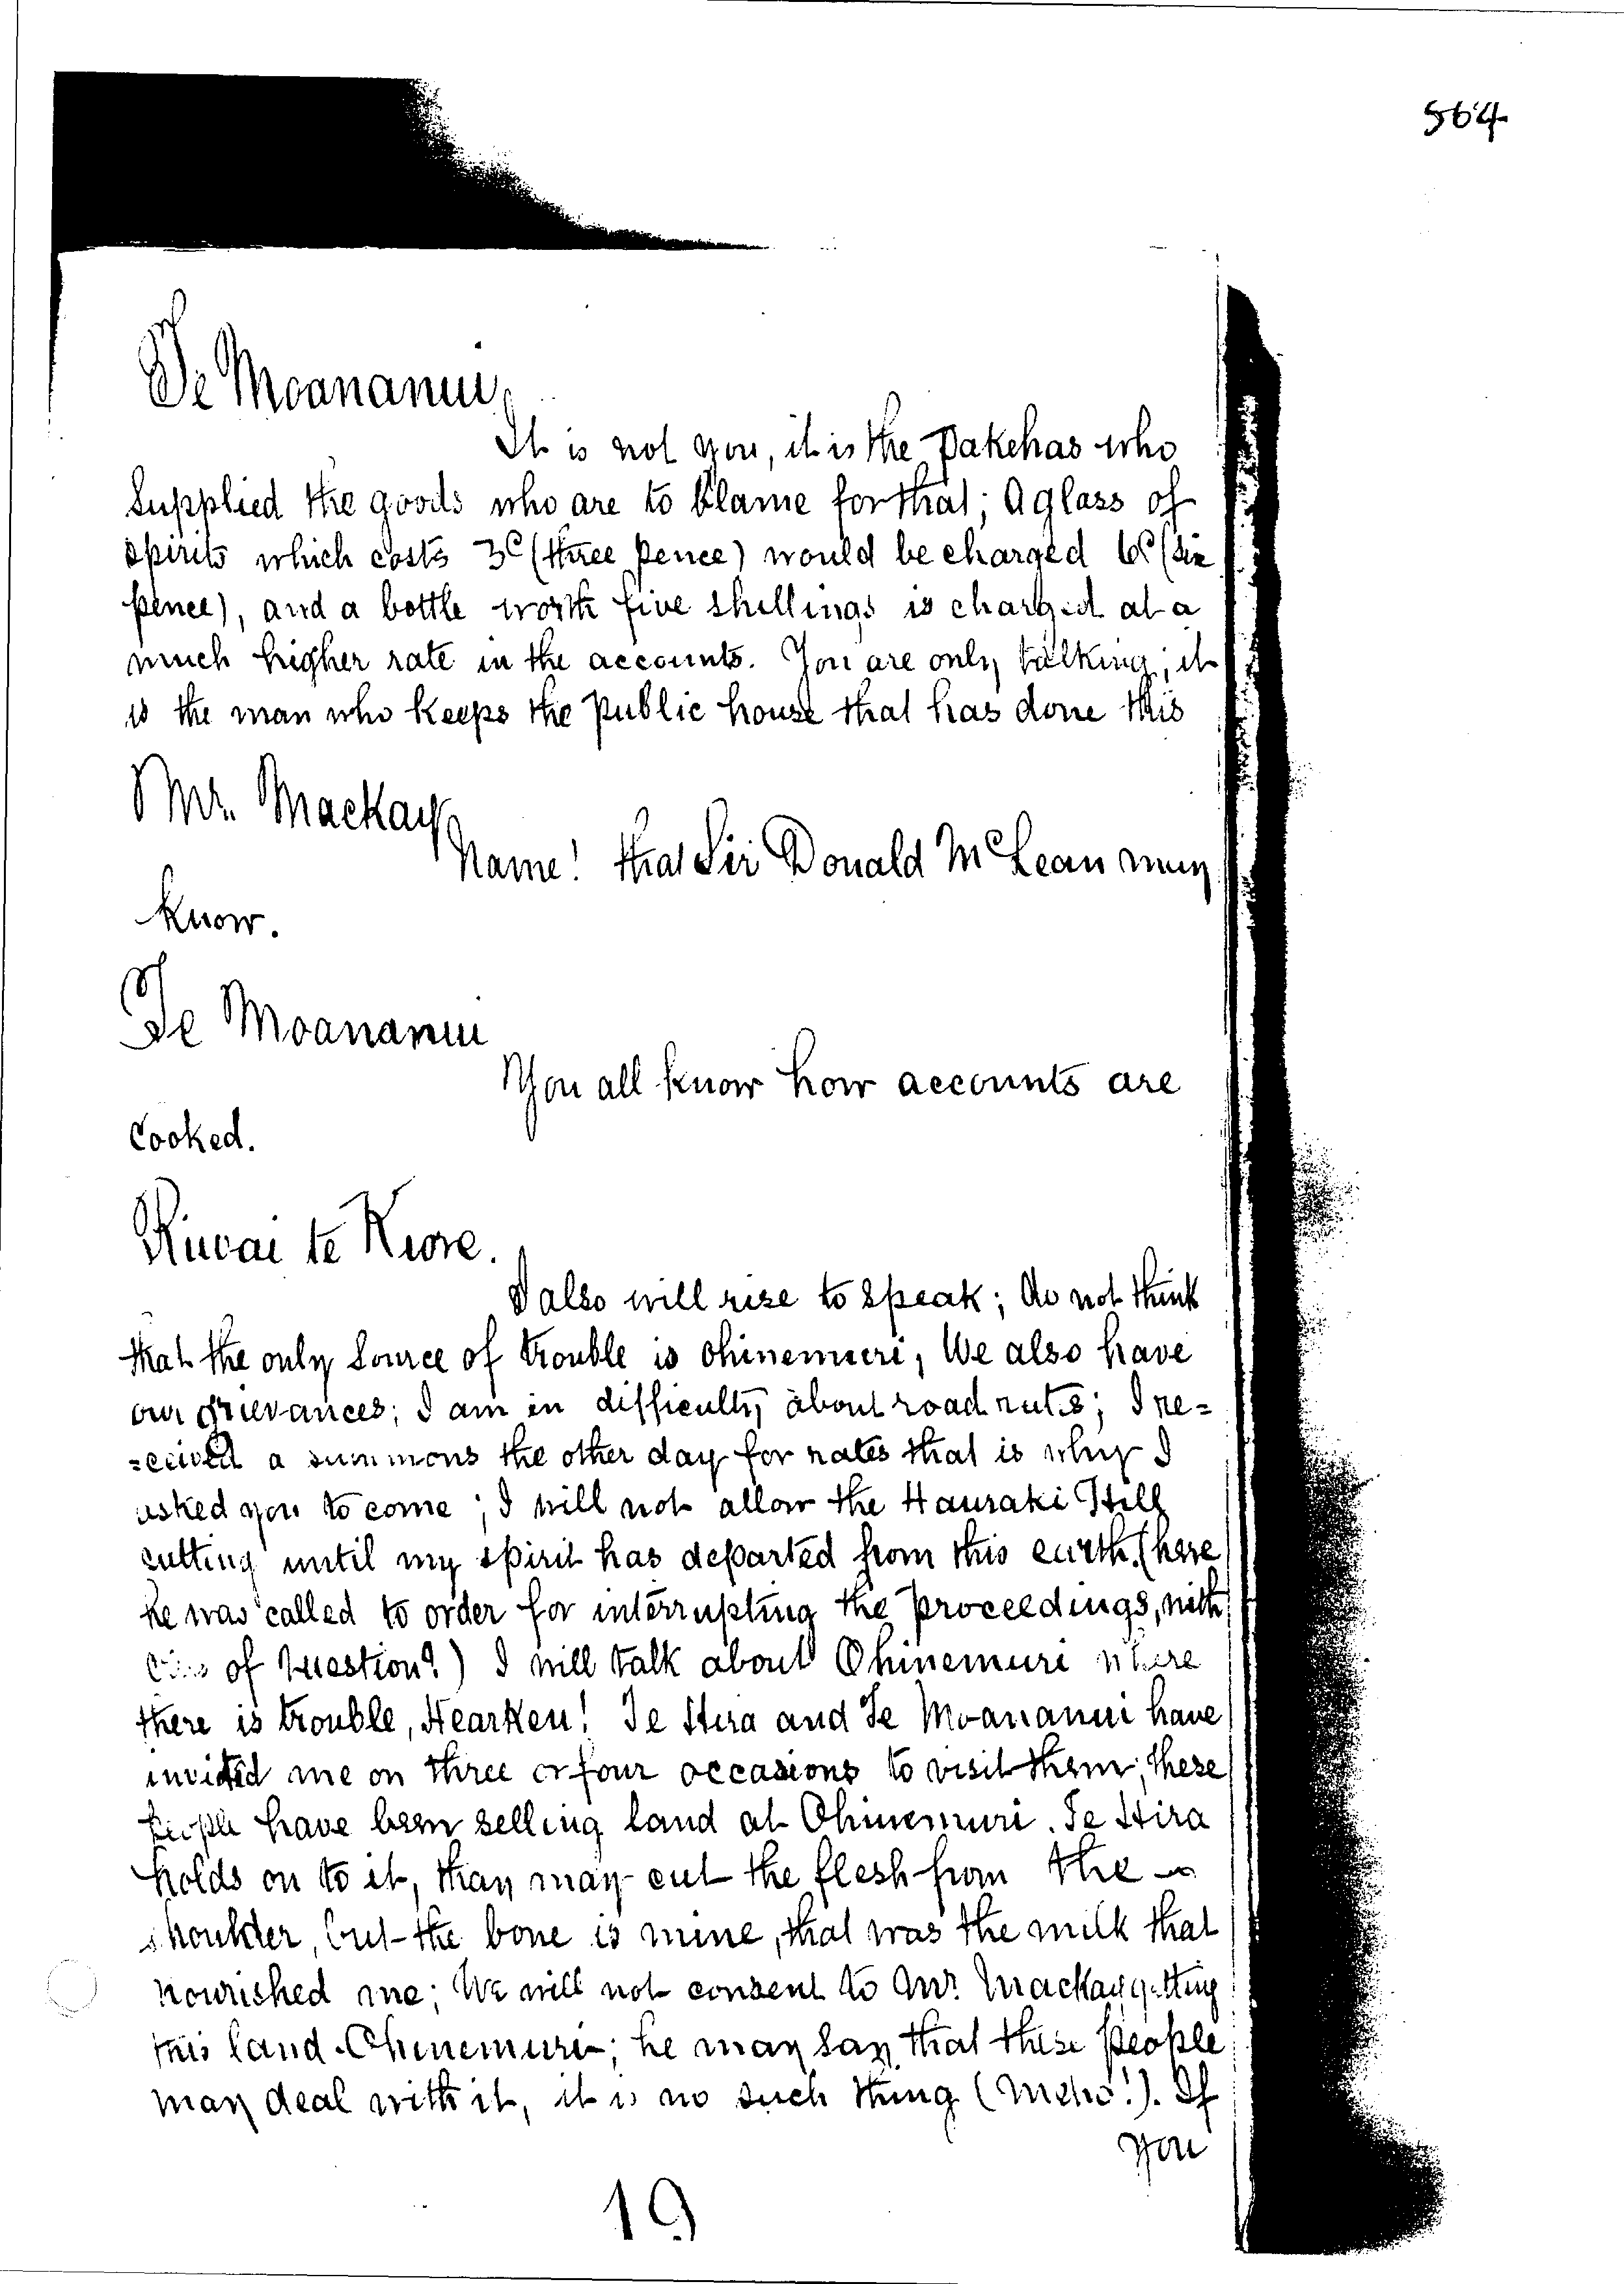 564
Te Moananui,
It is not you, it is the Pakehas who
supplied the goods who are to blame for that; A glass of
spirits which costs 3d (three pence) would be charged 6d (six
pence), and a bottle worth five shillings is charged at a
much higher rate in the accounts. You are only talking; it
is the man who keeps the public house that has done this
Mr. Mackay
Name! that Sir Donald McLean may
know.
Te Moananui
You all know how accounts are
Cooked.
Riwai te Kiore.
I also will rise to speak; do not think
that the only source of trouble is Ohinemuri, We also have
our grievances; I am in difficulty about road rates; I re=
=ceived a summons the other day for rates that is why I
asked you to come; I will not allow the Hauraki Hill
cutting until my spirit has departed from this earth. (here
he was called to order for interrupting the proceedings, with
cries of Question!) I will talk about Ohinemuri where
there is trouble, Hearken! Te Hira and Te Moananui have
invited me on three or four occasions to visit them; these
people have been selling land at Ohinemuri. Te Hira
holds on to it, thay may cut the flesh from the
shoulder, but the bone is mine, that was the milk that
nourished me; We will not consent to Mr. Mackay getting
this land - Ohinemuri -; he may say that these people
may deal with it, it is no such thing (Meho!). If
you
19